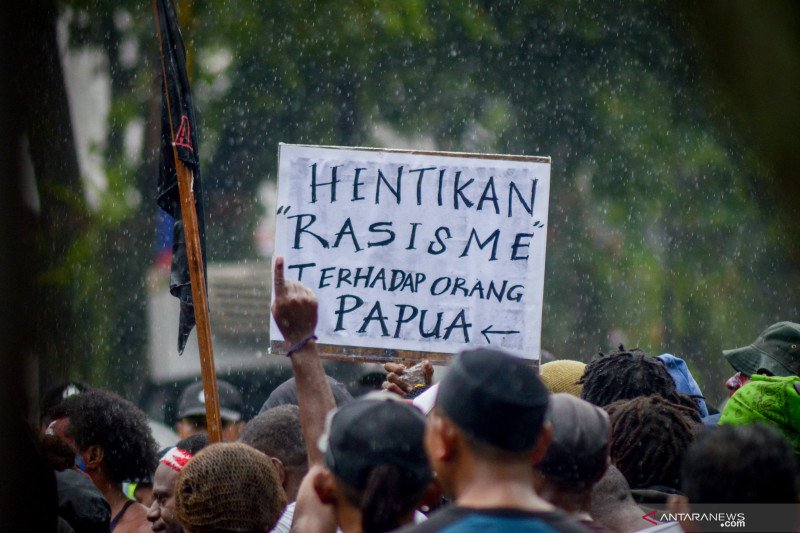 HENTIKAN
"RASISME"
TERHADAP ORANG
PAPUA ←
A
ANTARANEWS
.com